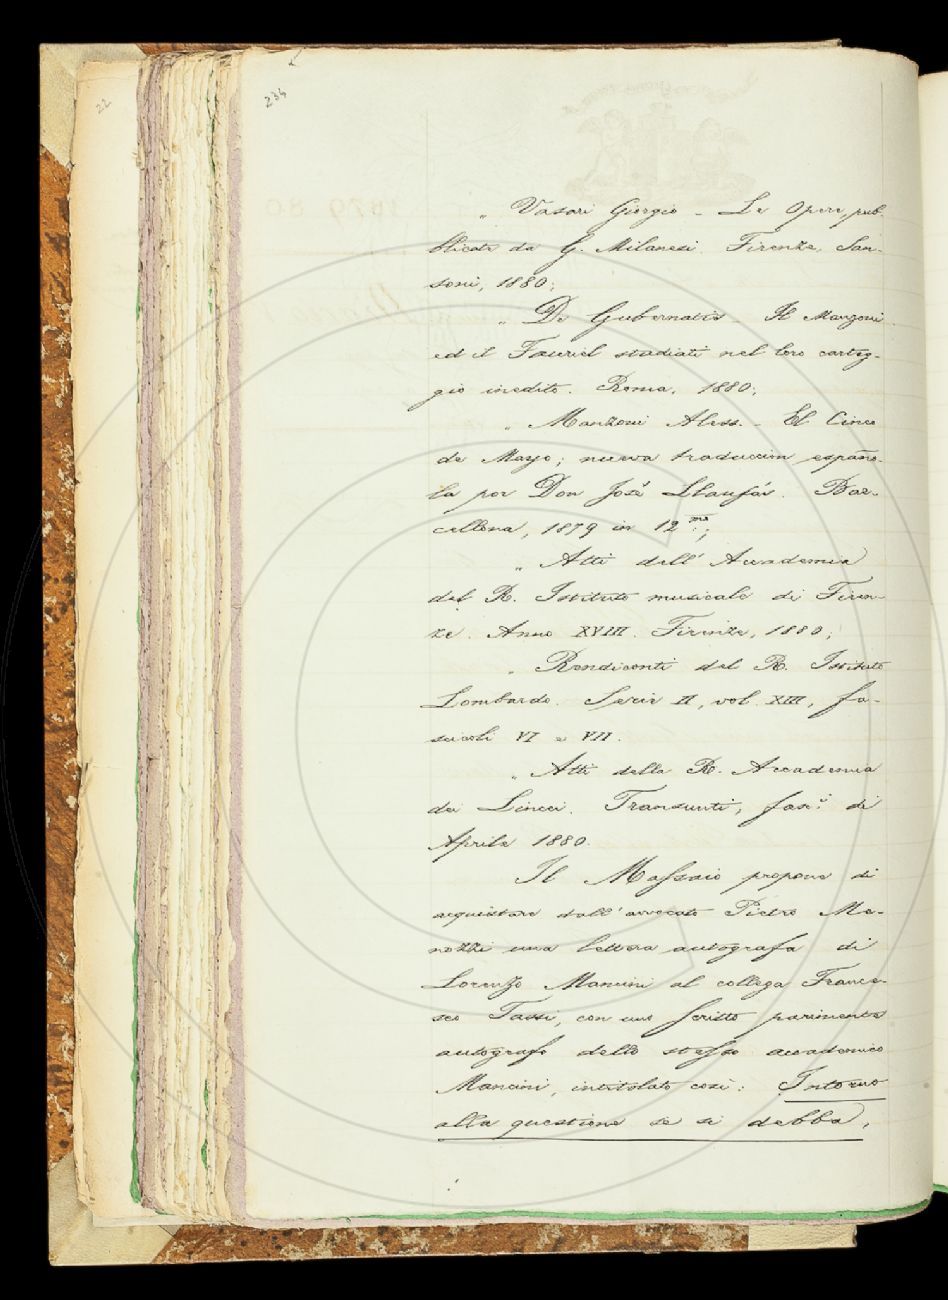 22
234
„ Vasari Giorgio – Le Opere, pub-
blicate da G. Milanesi. Firenze, San-
soni, 1880;
„ De Gubernatis – Il Manzoni
ed il Fauriel studiati nel loro carteg-
gio inedito. Roma, 1880;
„ Manzoni Aless. – El Cinco
de Mayo; nueva traduccion españo-
la por Don José Llausás. Bar-
cellona, 1879 in 12.mo;
„ Atti dell' Accademia
del R. Istituto musicale di Firen-
ze. Anno XVIII. Firenze, 1880;
„ Rendiconti del R. Istituto
Lombardo. Serie II, vol. XIII, fa-
scicoli VI e VII.
„ Atti della R. Accademia
dei Lincei. Transunti, fasc.o di
Aprile 1880.
Il Massaio propone di
acquistare dall' avvocato Pietro Me-
nozzi una lettera autografa di
Lorenzo Mancini al collega France-
sco Tassi, con uno scritto parimente
autografo dello stesso accademico
Mancini, intitolato così: Intorno
alla questione se si debba,